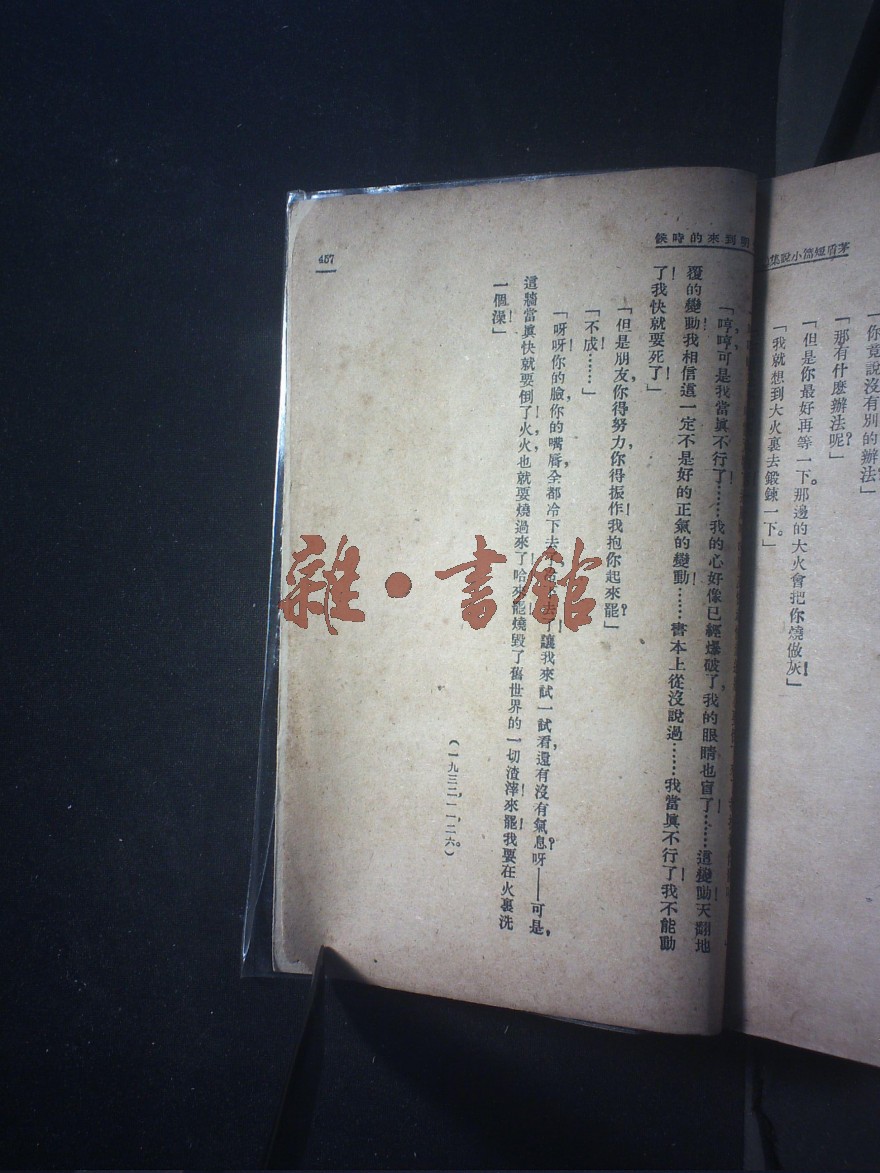 茅盾短篇小說集
「你竟說沒有別的辦法」
「那有什麽辦法呢?」
「但是你最好再等一下。那邊的大火會把你燒做灰!」
「我就想到大火裏去鍛鍊一下。」
到來的時候
「哼,哼,可是我當眞不行了!……我的心好像已經爆破了,我的眼睛也盲了!……這變動!天翻地
覆的變動!我相信這一定不是好的正氣的變動!……書本上從沒說過……我當眞不行了!我不能動
了!我快就要死了!」
「但是朋友,你得努力!你得振作!我抱你起來罷?」
「不成!……」
「呀!呀!你的臉,你的嘴唇,全都冷下去了!讓我來試一試看,還有沒有氣息?呀——可是,
這牆當眞快就要倒了!火,火也就要燒過來了!哈!來罷!燒毀了舊世界的一切渣滓!來罷!我要在火裏洗
一個澡!」
(一九三二,一一,二六。)
457
雜·書館